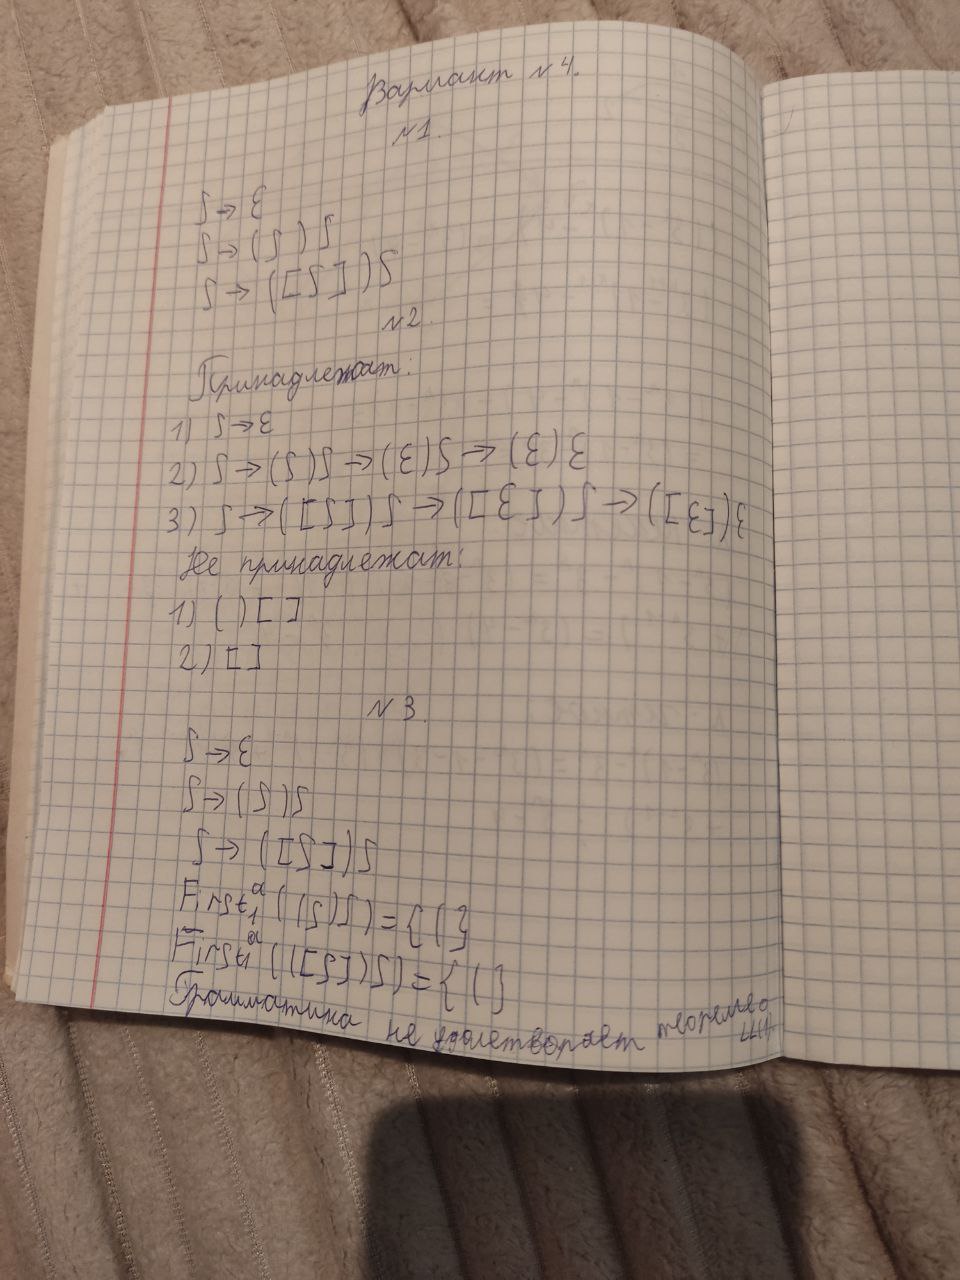 Вариант №4.
№1.
S → ε
S → (S)S
S → ([S])S
№2.
Принадлежат:
1) S → ε
2) S → (S)S → (ε)S → (ε)ε
3) S → ([S])S → ([ε])S → ([ε])ε
Не принадлежат:
1) ()[]
2) []
№3.
S → ε
S → (S)S
S → ([S])S
First₁ᵅ((S)S) = {(}
First₁ᵅ(([S])S) = {(}
Грамматика не удолетворяет теореме